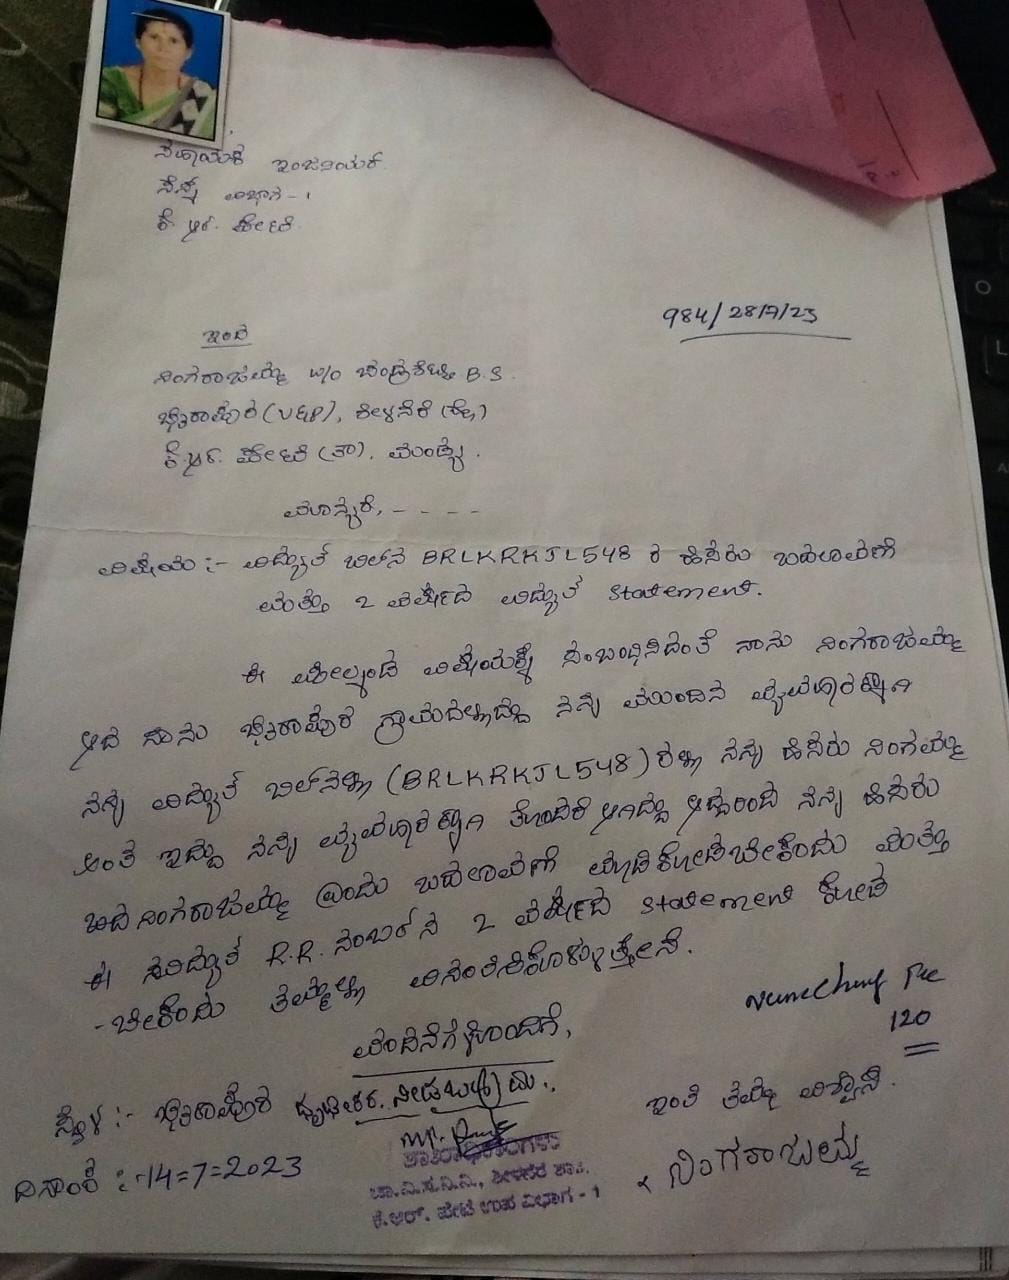 ಸಹಾಯಕ ಇಂಜಿನಿಯರ್
ಸೆಸ್ಕ್ ವಿಭಾಗ-1
ಕೆ.ಆರ್. ಪೇಟೆ.
984/28/7/23
ಇಂದ
ನಿಂಗರಾಜಮ್ಮ w/o ಚಂದ್ರಶೆಟ್ಟಿ B.S.
ಭೈರಾಪುರ (V&P), ಕೀಳನೆರೆ (ಹೋ)
ಕೆ.ಆರ್. ಪೇಟೆ (ತಾ). ಮಂಡ್ಯ.
ಮಾನ್ಯರೆ, - - - -
ವಿಷಯ :- ವಿದ್ಯುತ್ ಬಿಲ್‌ನ BRLKRKJL548 ರ ಹೆಸರು ಬದಲಾವಣೆ
ಮತ್ತು 2 ವರ್ಷದ ವಿದ್ಯುತ್ Statement.
ಈ ಮೇಲ್ಕಂಡ ವಿಷಯಕ್ಕೆ ಸಂಬಂಧಿಸಿದಂತೆ ನಾನು ನಿಂಗರಾಜಮ್ಮ
ಆದ ನಾನು ಭೈರಾಪುರ ಗ್ರಾಮದಲ್ಲಿದ್ದು ನನ್ನ ಮುಂದಿನ ವ್ಯವಹಾರಕ್ಕಾಗಿ
ನನ್ನ ವಿದ್ಯುತ್ ಬಿಲ್‌ನಲ್ಲಿ (BRLKRKJL548) ರಲ್ಲಿ ನನ್ನ ಹೆಸರು ನಿಂಗಮ್ಮ
ಅಂತ ಇದ್ದು ನನ್ನ ವ್ಯವಹಾರಕ್ಕಾಗಿ ತೊಂದರೆ ಆಗಿದ್ದು ಆದ್ದರಿಂದ ನನ್ನ ಹೆಸರು
ಆದ ನಿಂಗರಾಜಮ್ಮ ಎಂದು ಬದಲಾವಣೆ ಮಾಡಿಕೊಡಬೇಕೆಂದು ಮತ್ತು
ಈ ವಿದ್ಯುತ್ R.R. ನಂಬರ್‌ನ 2 ವರ್ಷದ Statement ಕೊಡ
-ಬೇಕೆಂದು ತಮ್ಮಲ್ಲಿ ವಿನಂತಿಸಿಕೊಳ್ಳುತ್ತೇನೆ.
Name Chang Fee
120
ವಂದನೆಗಳೊಂದಿಗೆ,
ಸ್ಥಳ :- ಭೈರಾಪುರ
ಇಂತಿ ತಮ್ಮ ವಿಶ್ವಾಸಿ.
ದಿನಾಂಕ :-14=7=2023
ನಿಂಗರಾಜಮ್ಮ
ಶಾಖಾಧಿಕಾರಿಗಳು
ಚಾ.ವಿ.ಸ.ನಿ.ನಿ., ಕೀಳನೆರೆ ಶಾಖೆ.
ಕೆ.ಆರ್. ಪೇಟೆ ಉಪ ವಿಭಾಗ - 1